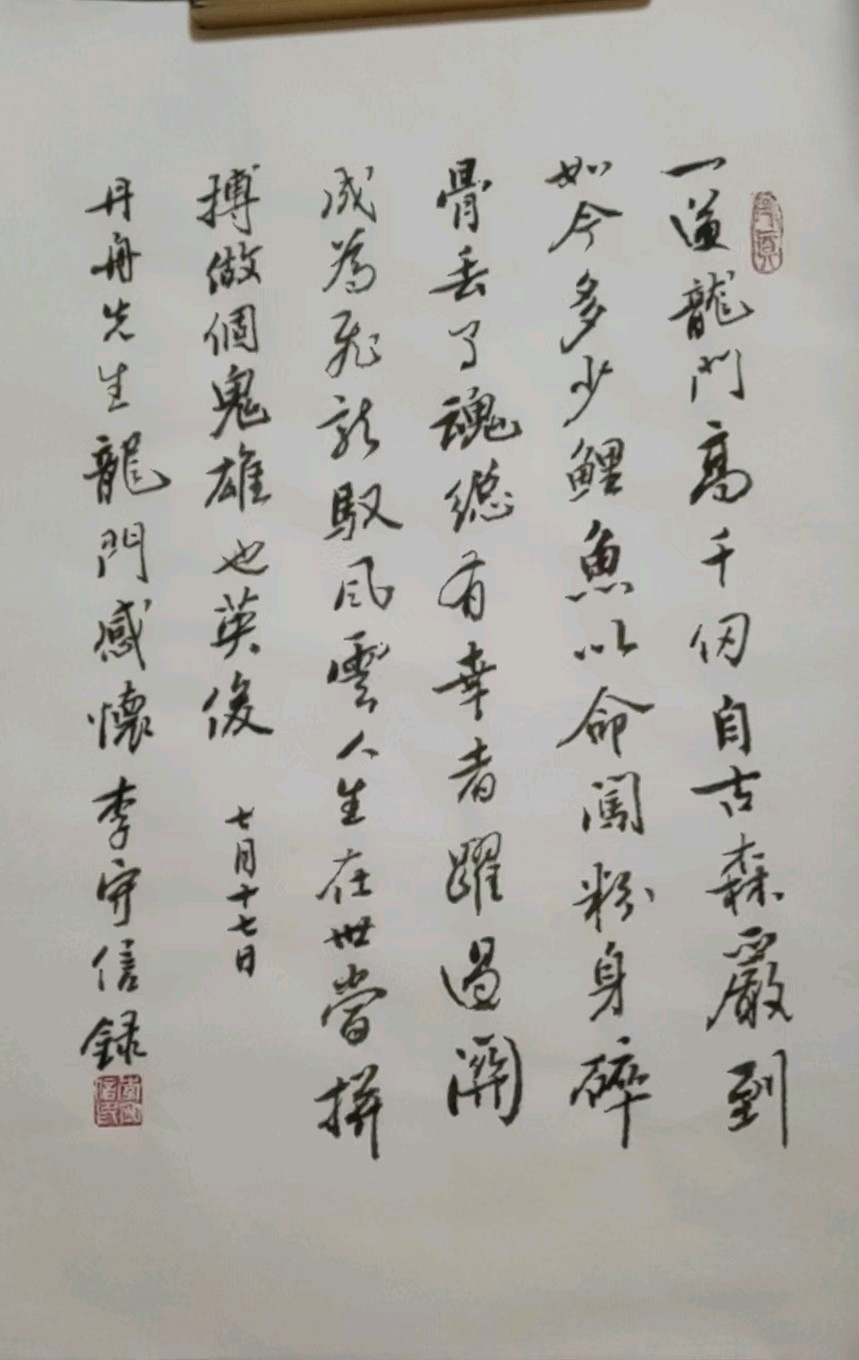 一道龍門高千仞自古森嚴到
如今多少鯉魚以命闖粉身碎
骨丢了魂總有幸者躍過關
成為飛龍馭風雲人生在世當拼
搏做個鬼雄也英俊
七月十七日
丹舟先生龍門感懷李守信録